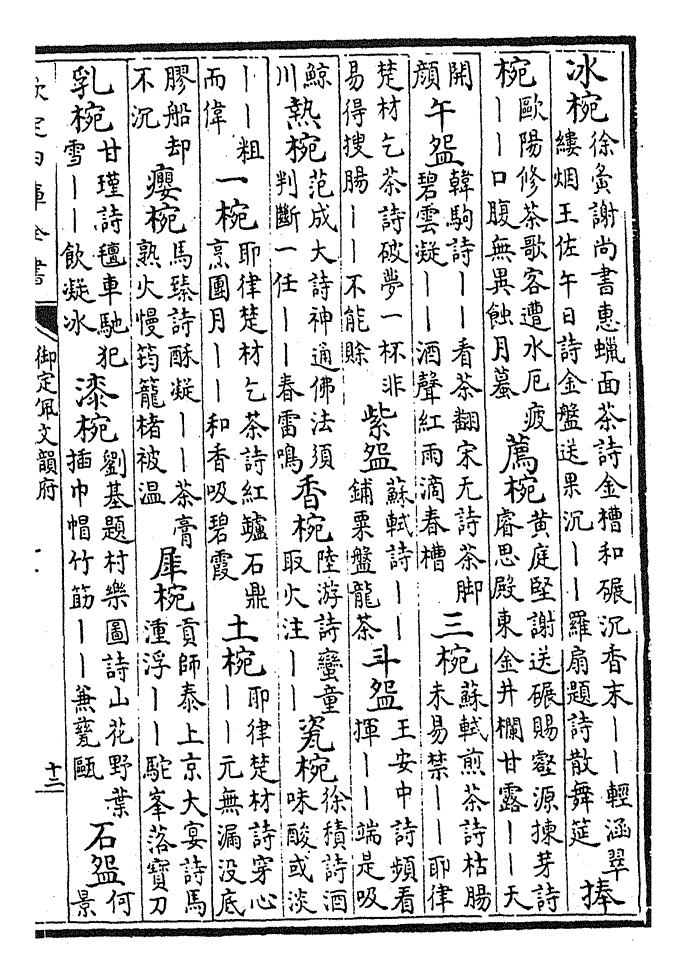 冰椀徐夤謝尚書惠蠟面茶詩金槽和碾沉香末——輕涵翠縷烟王佐午日詩金盤送果沉——羅扇題詩散舞筵捧
椀歐陽修茶歌客遭水厄疲——口腹無異蝕月蟇薦椀黃庭堅謝送碾賜壑源揀芽詩睿思殿東金井欄甘露——天
開顔午盌韓駒詩——看茶翻宋无詩茶脚碧雲凝——酒聲紅雨滴春槽三椀蘇軾煎茶詩枯腸未易禁——耶律
楚材乞茶詩破夢一杯非易得搜腸——不能賒紫盌蘇軾詩——鋪粟盤龍茶斗盌王安中詩頻看揮——端是吸
鯨川熟椀范成大詩神通佛法須判斷一任——春雷鳴香椀陸游詩蠻童取火注——瓷椀徐積詩酒味酸或淡
——粗而偉一椀耶律楚材乞茶詩紅鑪石鼎烹團月——和香吸碧霞土椀耶律楚材詩穿心——元無漏没底
膠船却不沉癭椀馬臻詩酥凝——茶膏熟火慢筠籠楮被温犀椀貢師泰上京大宴詩馬湩浮——駝峯落寶刀
乳椀甘瑾詩氊車馳犯雪——飲凝冰漆椀劉基題村樂圖詩山花野葉插巾帽竹筯——兼甆甌石盌何景
欽定四庫全書
御定佩文韻府
十二